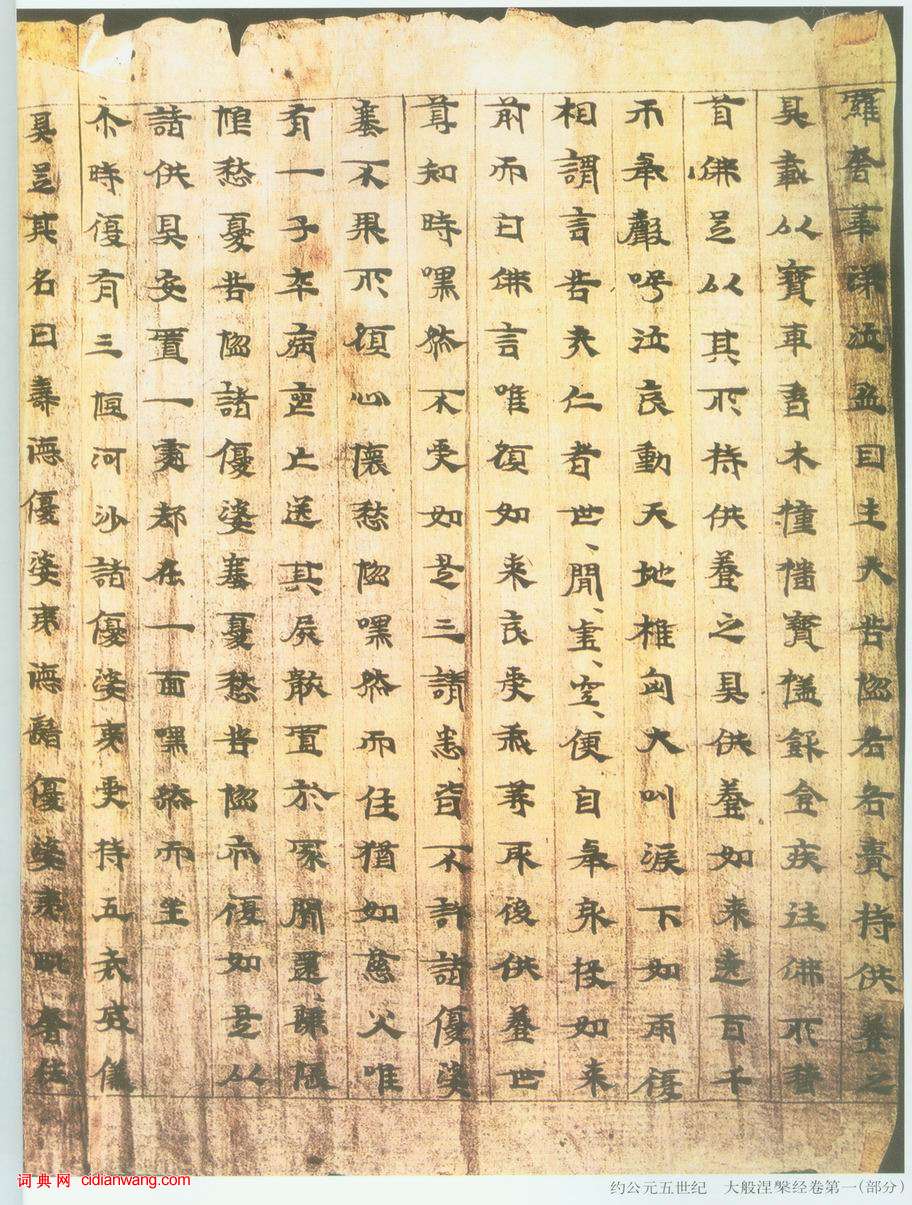 羅奢華涕泣盈目生大苦惱各各賷持供養之
具載以寶車香木幢幡寶盖飲食疾往佛所稽
首佛足以其所持供養之具供養如來遶百千
帀舉聲号泣哀動天地椎匈大叫淚下如雨復
相謂言苦夫仁者世、閒、虛、空、便自舉身投如來
前而白佛言唯願如來哀受我等最後供養世
尊知時嘿然不受如是三請悉皆不許諸優婆
塞不果所願心懷愁惱嘿然而住猶如慈父唯
有一子卒病喪亡送其屍骸置於冢閒還歸悵
悢愁憂苦惱諸優婆塞憂愁苦惱亦復如是以
諸供具安置一處却在一面嘿然而坐
尒時復有三恒河沙諸優婆夷受持五戒威儀
具足其名曰壽德優婆夷德鬘優婆夷毗舍佉
约公元五世纪　大般涅槃经卷第一(部分)
词典网 cidianwang.com